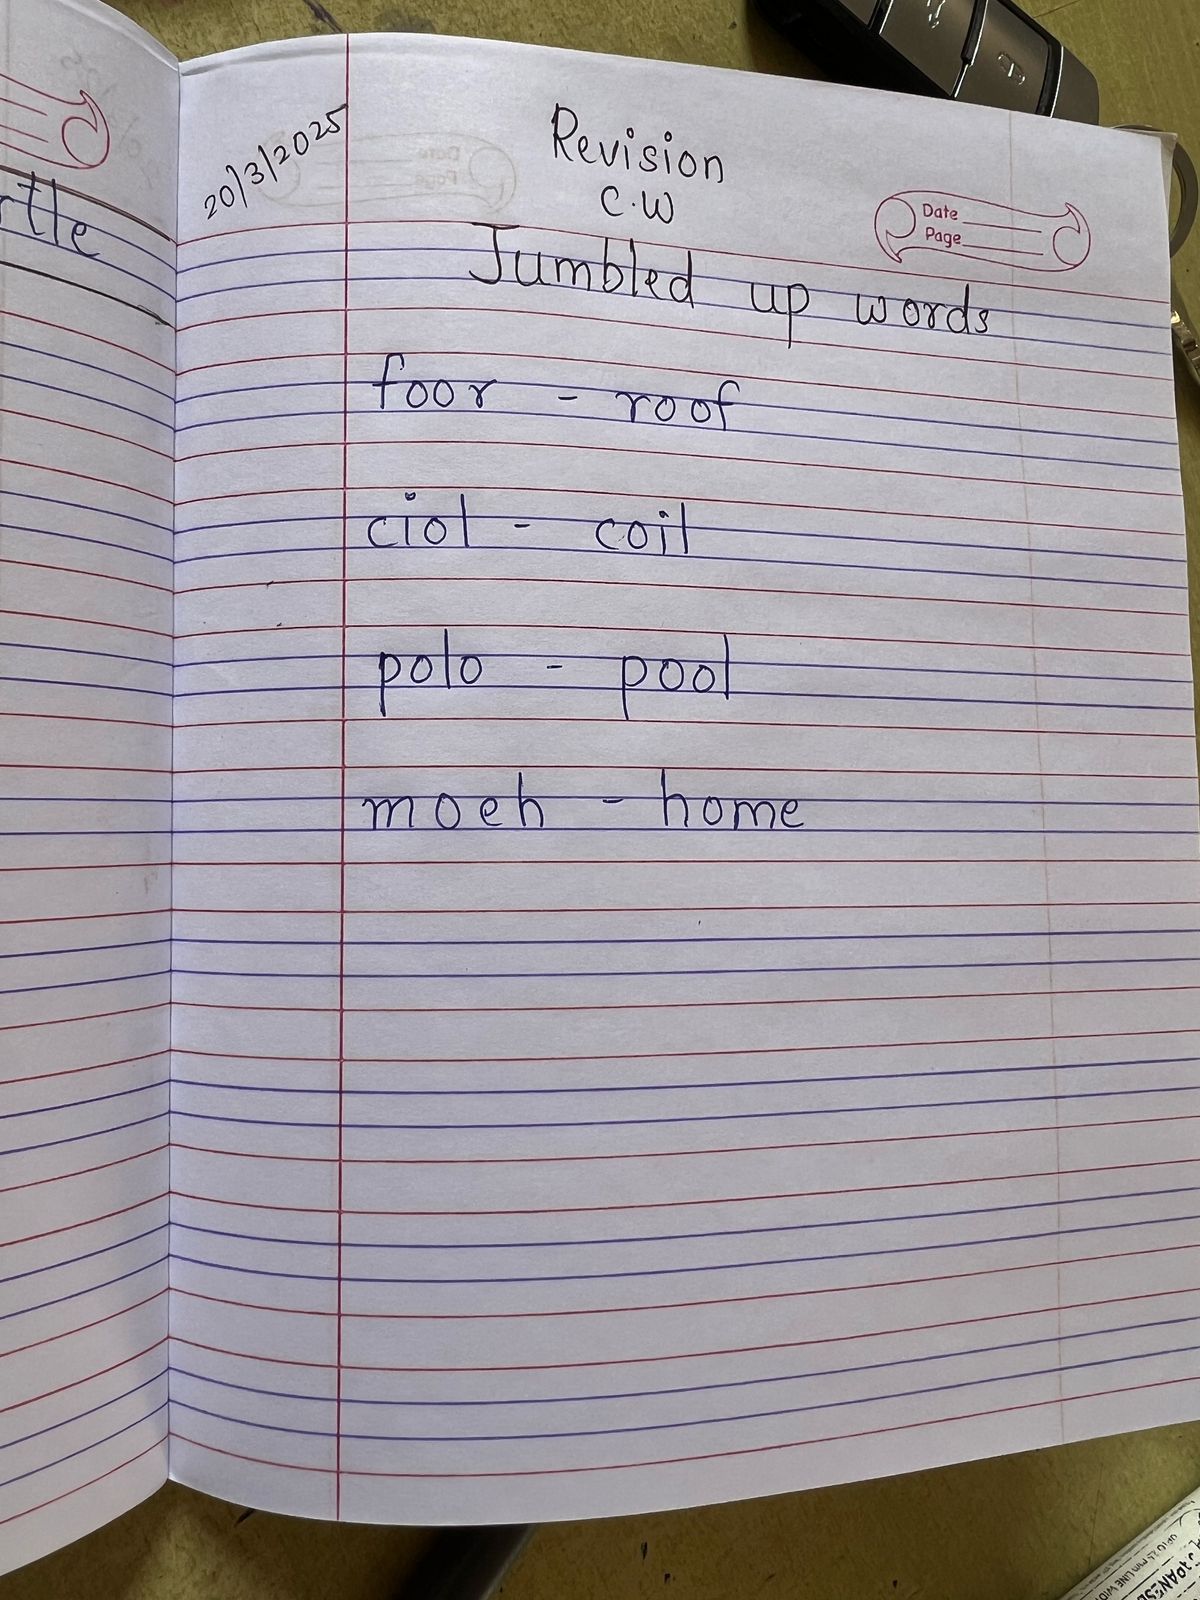 rtle
20/3/2025
Revision
C.W
Date
Page
Jumbled up words
foor - roof
ciol - coil
polo - pool
moeh - home